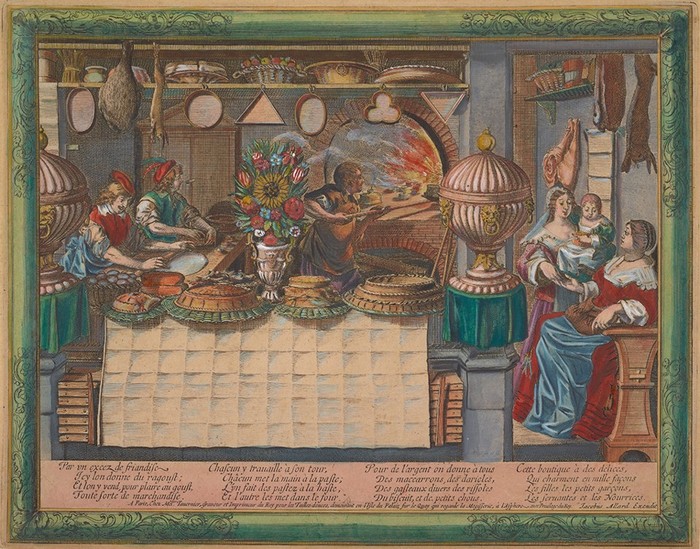 Par vn excez de friandise
Icy lon donne du ragoust;
Et lon y vend, pour plaire au goust,
Toute sorte de marchandise.
Chascun y trauaille à son tour,
Chacun met la main à la paste;
L'yn fait des pastez à la haste,
Et l'autre les met dans le four.
Pour de l'argent on donne à tous
Des maccarrons, des darioles,
Des gasteaux diuers des rissoles
Du biscuit, et de petits choux.
Cette boutique à des délices,
Qui charment en mille façons
Les filles, les petits garçons,
Les seruantes et les Nourrices
A Paris, Chez Mel. Tauernier, graueur et Imprimeur du Roy pour les Tailles douces, demeurant en l'Isle du Palais, sur le Quay qui regarde la Megisserie, à l'Espi Iacobus Allard Excudit